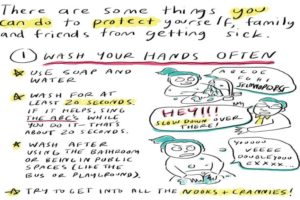 There are some things you
can do to protect yourself, family
and friends from getting sick.
1 WASH YOUR HANDS OFTEN
USE SOAP AND
WATER
WASH FOR AT
LEAST 20 SECONDS.
IF IT HELPS, SING
THE ABC'S WHILE
YOU DO IT- THAT'S
ABOUT 20 SECONDS.
WASH AFTER
USING THE BATHROOM
OR BEING IN PUBLIC
SPACES (LIKE THE
BUS OR PLAYGROUND).
TRY TO GET INTO ALL THE NOOKS + CRANNIES!
A B C D E
F G H I
HEY!!!
SLOW DOWN OVER
THERE!
YOUUUU
VEEEE
DOUBLEYOUU
EXXXX...